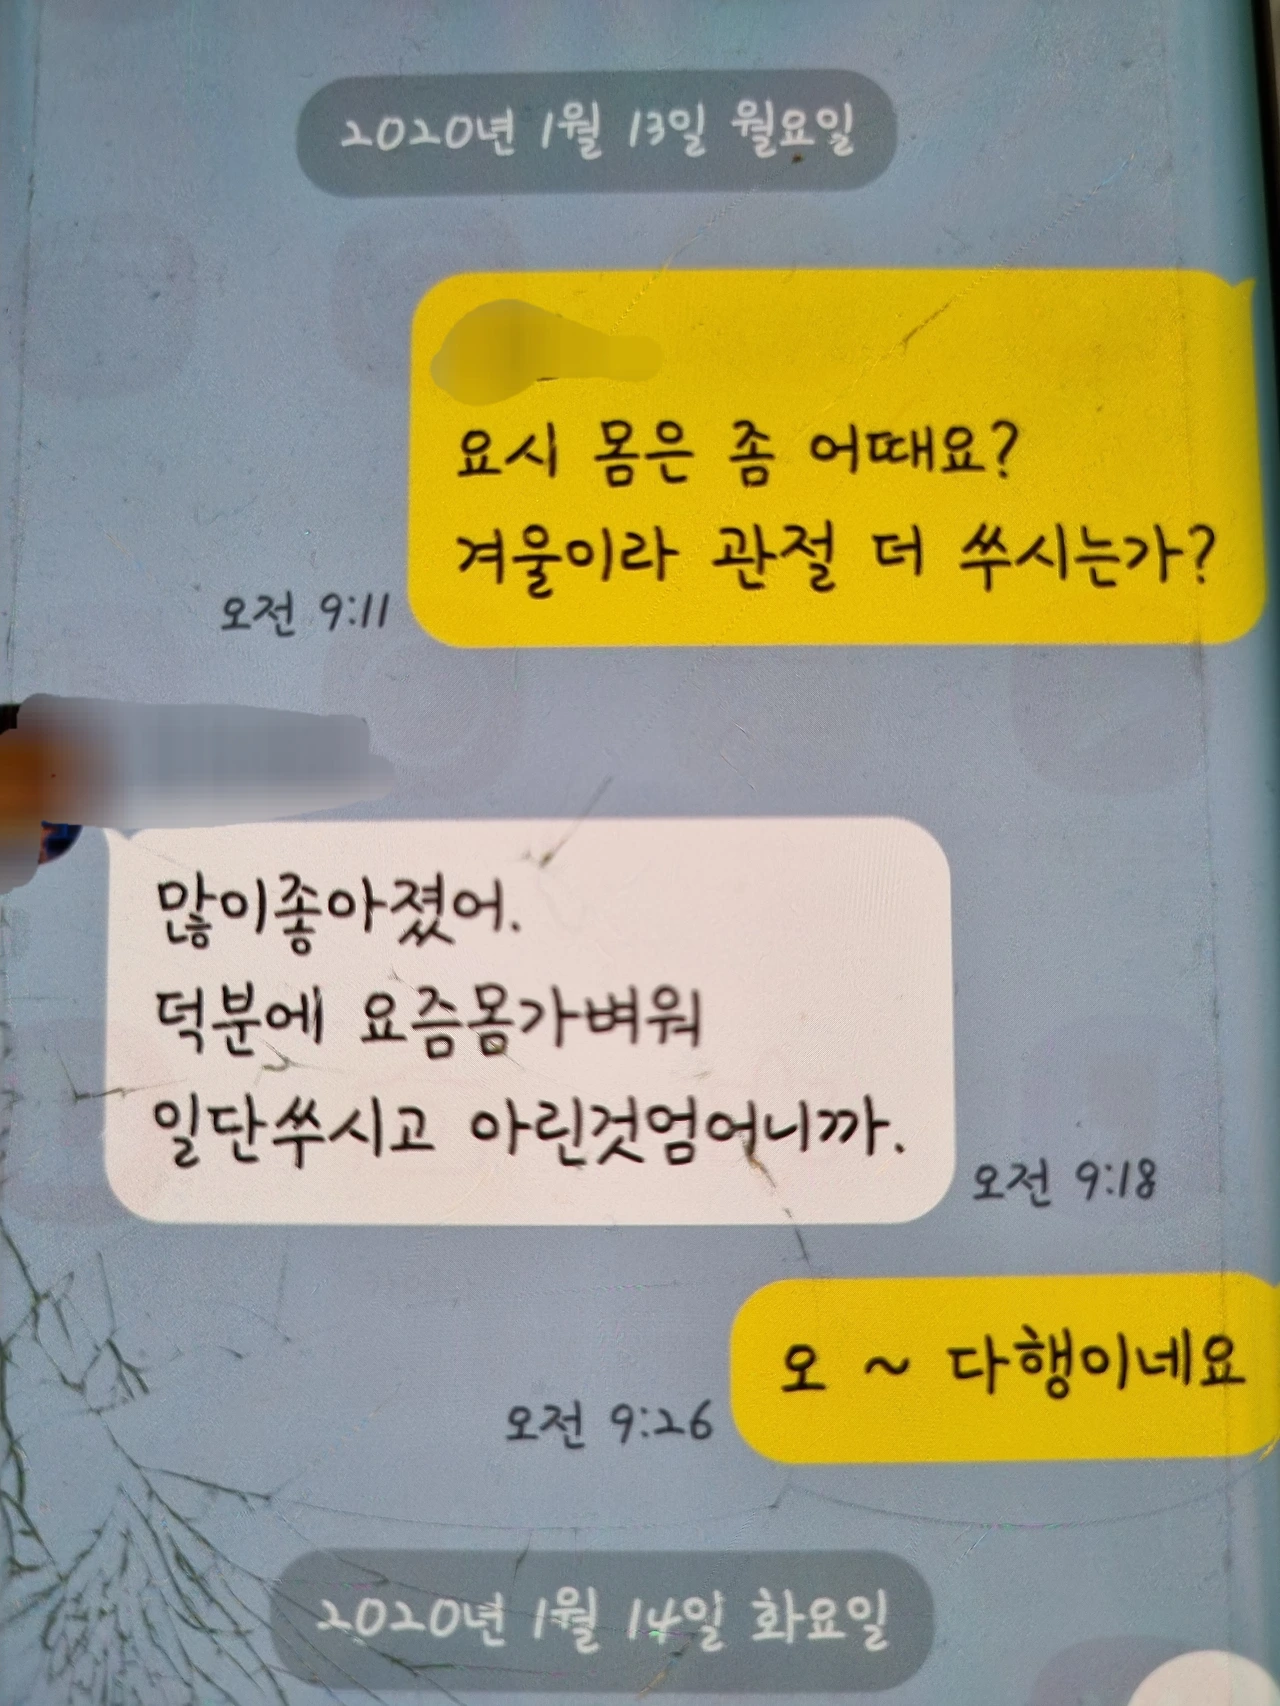 2020년 1월 13일 월요일
요시 몸은 좀 어때요?
겨울이라 관절 더 쑤시는가?
오전 9:11
많이좋아졌어.
덕분에 요즘몸가벼워
일단쑤시고 아린것엄어니까.
오전 9:18
오 ~ 다행이네요
오전 9:26
2020년 1월 14일 화요일